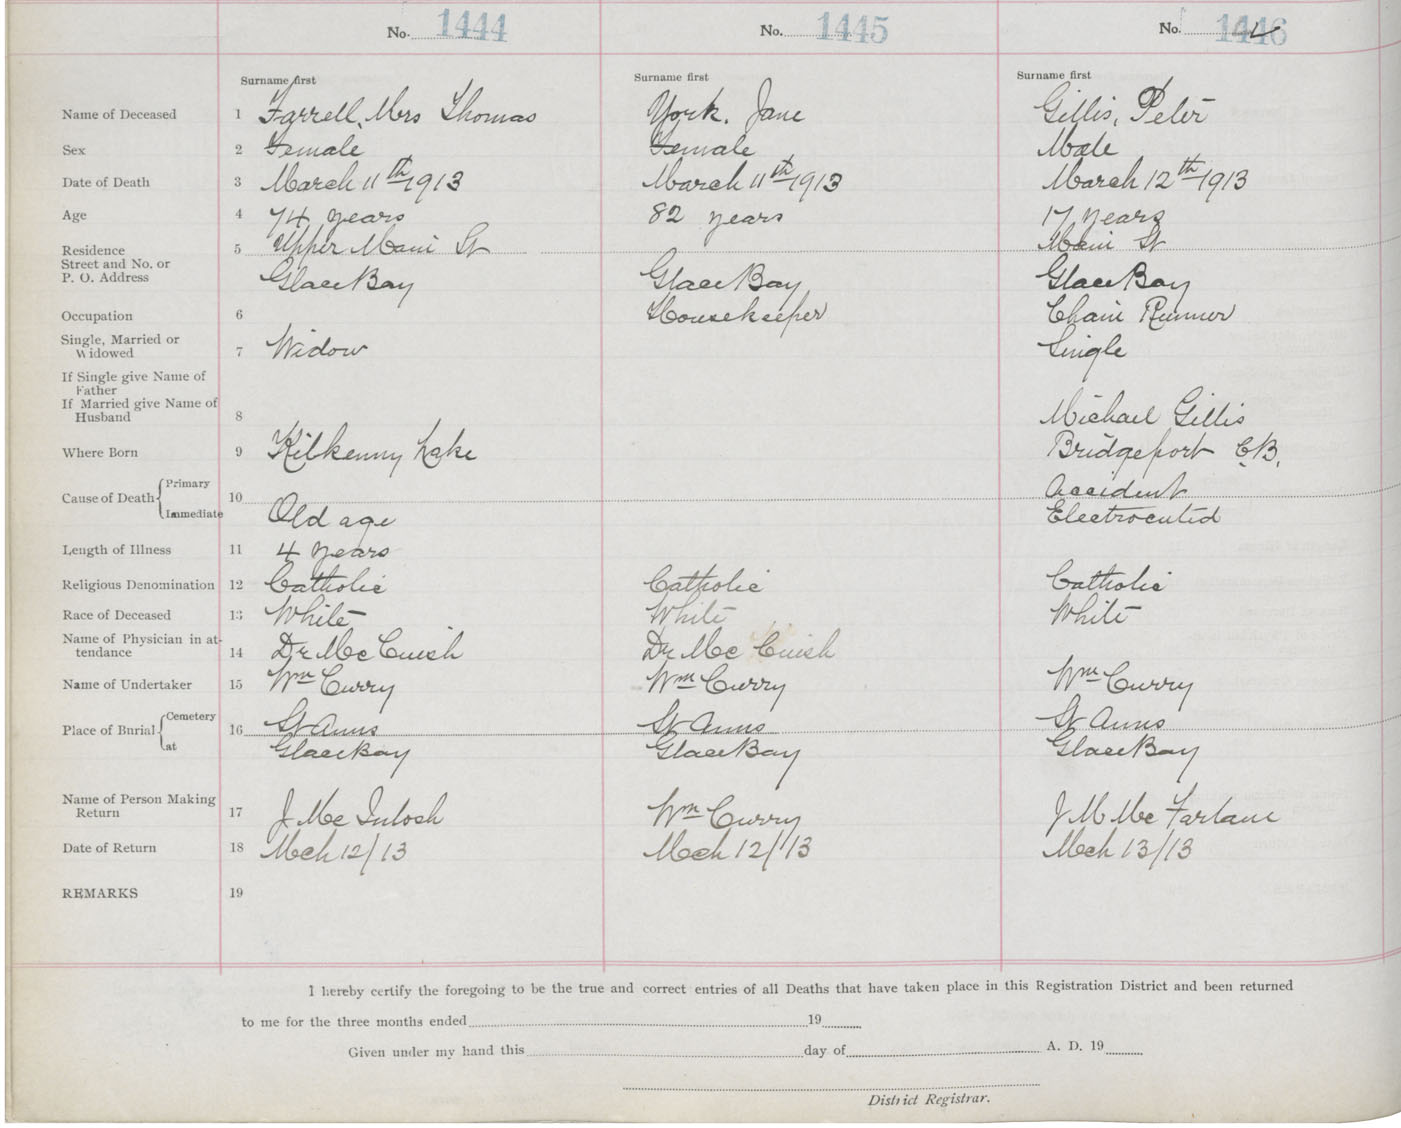 No. 1444 No. 1445 No. 1446
Surname first Surname first Surname first
Name of Deceased 1 Farrell, Mrs Thomas York. Jane Gillis, Peter
Sex 2 Female Female Male
Date of Death 3 March 11th 1913 March 11th 1913 March 12th 1913
Age 4 74 years 82 years 17 years
Residence 5 Upper Main St Main St
Street and No. or
P. O. Address Glace Bay Glace Bay Glace Bay
Occupation 6 Housekeeper Chain Runner
Single, Married or
Widowed 7 Widow Single
If Single give Name of
Father
If Married give Name of
Husband 8 Michael Gillis
Where Born 9 Kilkenny Lake Bridgeport C.B.
Cause of Death Primary 10 Accident
Immediate Old age Electrocuted
Length of Illness 11 4 years
Religious Denomination 12 Catholic Catholic Catholic
Race of Deceased 13 White White White
Name of Physician in at-
tendance 14 Dr McCuish Dr McCuish
Name of Undertaker 15 Wm Curry Wm Curry Wm Curry
Place of Burial Cemetery 16 St Anns St Anns St Anns
at Glace Bay Glace Bay Glace Bay
Name of Person Making
Return 17 J McIntosh Wm Curry J M McFarlane
Date of Return 18 Mch 12/13 Mch 12/13 Mch 13/13
REMARKS 19
I hereby certify the foregoing to be the true and correct entries of all Deaths that have taken place in this Registration District and been returned
to me for the three months ended 19
Given under my hand this day of A. D. 19
District Registrar.